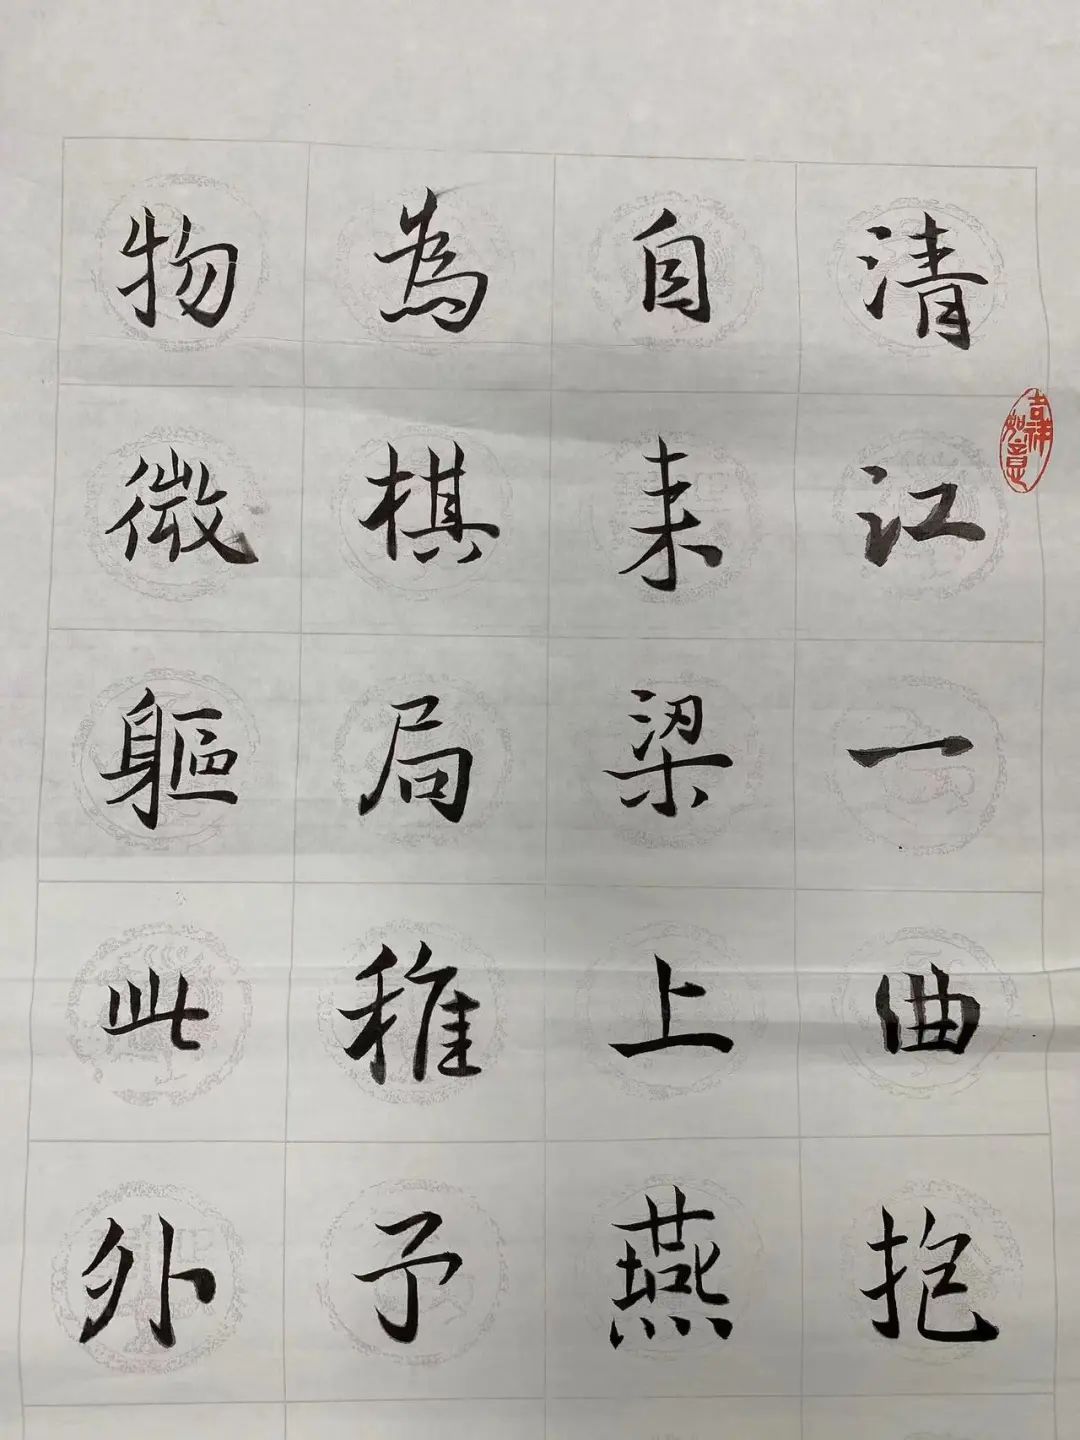 清江一曲抱
自来梁上燕
為棋局稚子
物微軀此外
吉祥如意